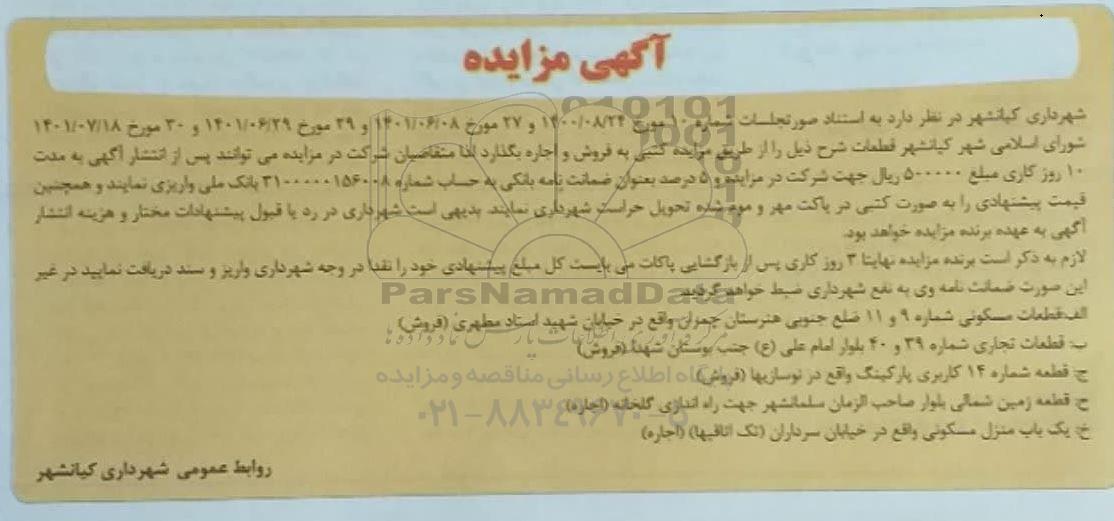 آگهی مزایده
شهرداری کیانشهر در نظر دارد به استناد صورتجلسات شماره ۱۰ مورخ ۱۴۰۰/۰۸/۲۴ و ۲۷ مورخ ۱۴۰۱/۰۶/۰۸ و ۲۹ مورخ ۱۴۰۱/۰۶/۲۹ و ۳۰ مورخ ۱۴۰۱/۰۷/۱۸
شورای اسلامی شهر کیانشهر قطعات شرح ذیل را از طریق مزایده کتبی به فروش و اجاره بگذارد لذا متقاضیان شرکت در مزایده می توانند پس از انتشار آگهی به مدت
۱۰ روز کاری مبلغ ۵۰۰۰۰۰ ریال جهت شرکت در مزایده و ۵ درصد بعنوان ضمانت نامه بانکی به حساب شماره ۳۱۰۰۰۰۰۱۵۶۰۰۸ بانک ملی واریزی نمایند و همچنین
قیمت پیشنهادی را به صورت کتبی در پاکت مهر و موم شده تحویل حراست شهرداری نمایند. بدیهی است شهرداری در رد یا قبول پیشنهادات مختار و هزینه انتشار
آگهی به عهده برنده مزایده خواهد بود.
لازم به ذکر است برنده مزایده نهایتا ۳ روز کاری پس از بازگشایی پاکات می بایست کل مبلغ پیشنهادی خود را نقدا در وجه شهرداری واریز و سند دریافت نمایید در غیر
این صورت ضمانت نامه وی به نفع شهرداری ضبط خواهد گردید.
ParsNamadData
الف:قطعات مسکونی شماره ۹ و ۱۱ ضلع جنوبی هنرستان چمران واقع در خیابان شهید استاد مطهری (فروش)
ب: قطعات تجاری شماره ۳۹ و ۴۰ بلوار امام علی (ع) جنب بوستان شهدا (فروش)
ج: قطعه شماره ۱۴ کاربری پارکینگ واقع در نوسازیها (فروش)
پایگاه اطلاع رسانی مناقصه و مزایده
ح: قطعه زمین شمالی بلوار صاحب الزمان سلمانشهر جهت راه اندازی گلخانه (اجاره)
۰۲۱-۸۸۳۴۹۶۷۰-۵
خ: یک باب منزل مسکونی واقع در خیابان سرداران (تک اتاقیها) (اجاره)
روابط عمومی شهرداری کیانشهر